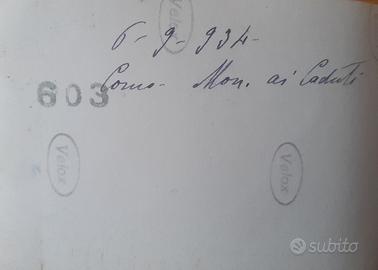 Velox
6-9-934-
Como- Mon. ai Caduti
603
Velox
Velox
subito